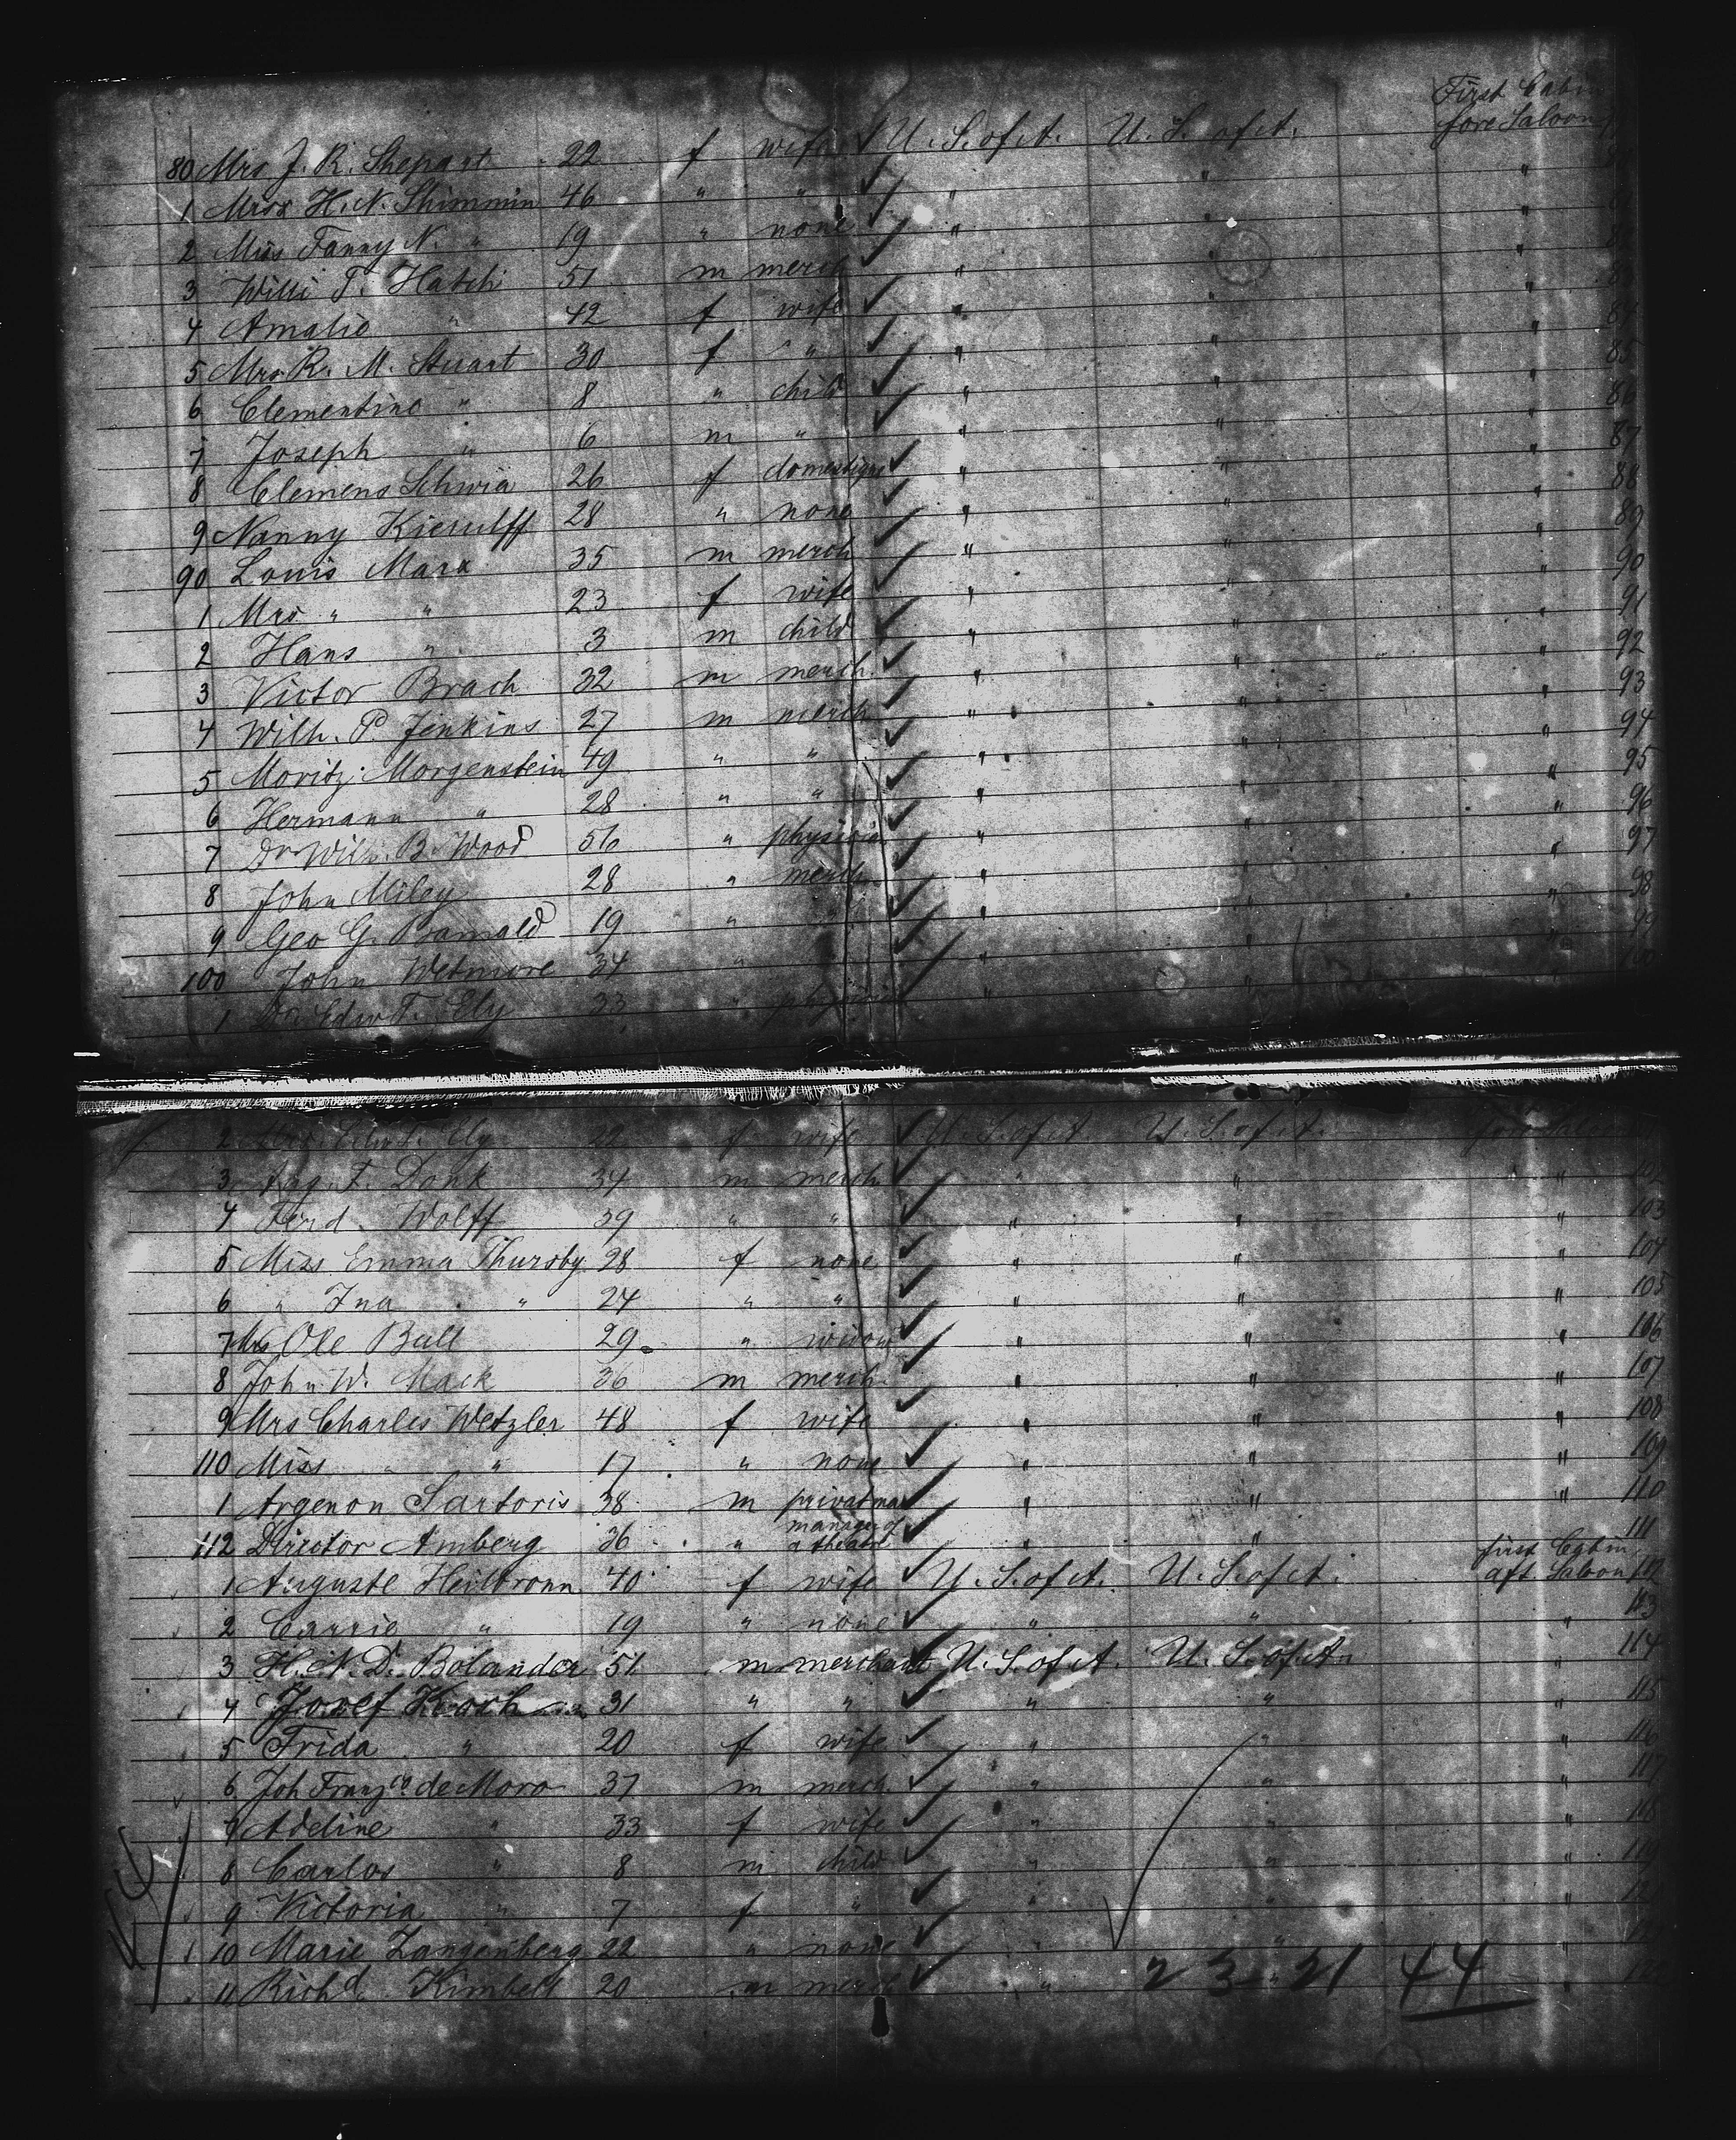 First Cabin
80 Mrs J. R. Shepart 22 f wife ✓ U. S. of A. U. S. of A. fore Saloon
1 Mrs H. N. Shimmin 46 " " ✓ " " "
2 Miss Fanny N. " 19 " none ✓ " " "
3 Willi T. Hatch 51 m merch ✓ " " "
4 Amalie " 42 f wife ✓ " " " 84
5 Mrs R. M. Stuart 30 f " ✓ " " " 85
6 Clementine " 8 " child ✓ " " " 86
7 Joseph " 6 m " ✓ " " " 87
8 Clemens Schwia 26 f domestique ✓ " " " 88
9 Nanny Kierulff 28 " none ✓ " " " 89
90 Louis Marx 35 m merch ✓ " " " 90
1 Mrs " " 23 f wife ✓ " " " 91
2 Hans " 3 m child ✓ " " " 92
3 Victor Brach 32 m merch. ✓ " " " 93
4 Wilh. P. Jenkins 27 m merch ✓ " " " 94
5 Moritz Morgenstein 49 " " ✓ " " " 95
6 Hermann " 28 " " ✓ " " " 96
7 Dr Will. B. Wood 56 " physician ✓ " " " 97
8 John Miley 28 " merch ✓ " " " 98
9 Geo G. 19 " " ✓ " " " 99
100 John Wetmore 34 " " ✓ " " " 100
1 Dr. Edw. F. Ely 33 " physician ✓ " "
2 Mrs. Edw. F. Ely 22 f wife ✓ U. S. of A. U. S. of A.
3 Aug. F. Donk 34 m merch ✓ " " " 102
4 Ferd. Wolff 39 " " ✓ " " " 103
5 Miss Emma Thursby 28 f none ✓ " " " 104
6 " Ina " 24 " " ✓ " " " 105
7 Mrs Ole Bull 29 " widow ✓ " " " 106
8 John W. Mack 36 m merch. ✓ " " " 107
9 Mrs Charles Wetzler 48 f wife ✓ " " " 108
110 Miss " " 17 " none ✓ " " " 109
1 Argenon Sartoris 38 m privatman ✓ " " " 110
112 Director Amberg 36 " manager of a theatre ✓ " " 111
first Cabin
1 Auguste Heilbronn 40 f wife ✓ U. S. of A. U. S. of A. aft Saloon 112
2 Carrie " 19 " none ✓ " " " 113
3 H. N. D. Bolander 51 m merchant ✓ U. S. of A. U. S. of A. " 114
4 Josef 31 " " ✓ " " " 115
5 Frida " 20 f wife ✓ " " " 116
6 Joh Franzco de Moro 37 m merch. ✓ " " " 117
7 Adeline " 33 f wife ✓ " " " 118
8 Carlos " 8 m child ✓ " " " 119
9 Victoria " 7 f " ✓ " " "
10 Marie Langenberg 22 " none ✓ " " "
11 Richd. Kimbell 20 m merch ✓ " " "
23 21 44